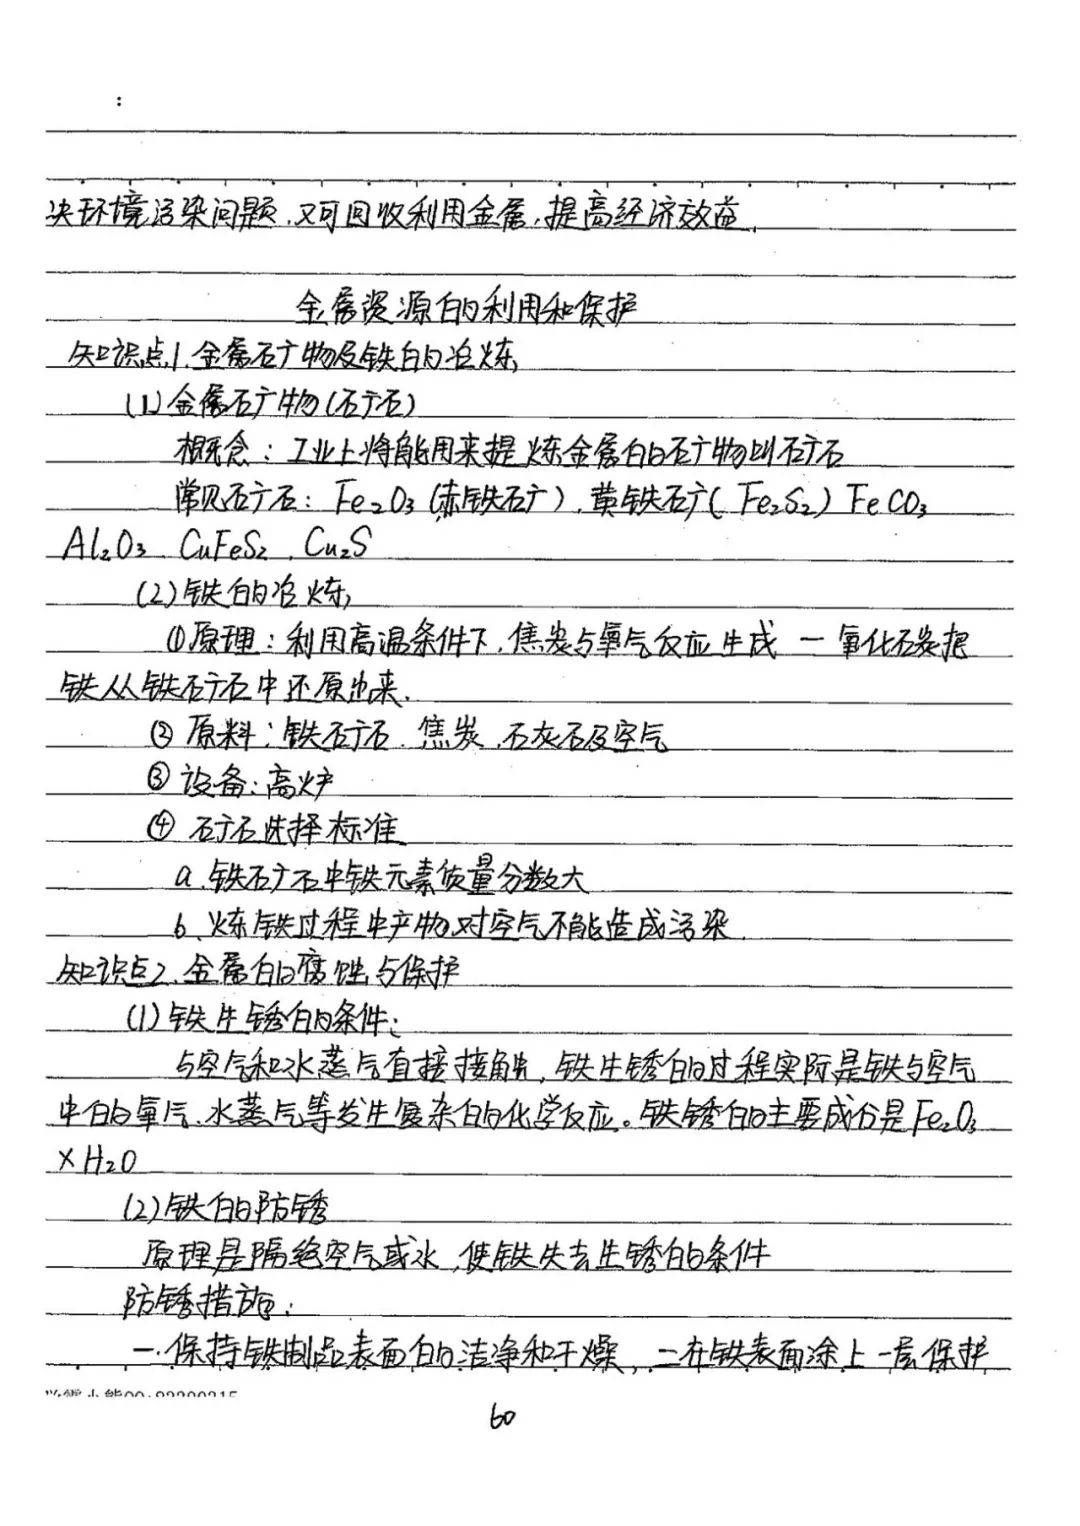 :
决环境污染问题,又可回收利用金属,提高经济效益.
金属资源的利用和保护
知识点1.金属矿物及铁的冶炼
(1)金属矿物(矿石)
概念:工业上将能用来提炼金属的矿物叫矿石
常见矿石: Fe₂O₃(赤铁矿).黄铁矿(Fe₂S₂) FeCO₃
Al₂O₃ CuFeS₂ . Cu₂S
(2)铁的冶炼
①原理:利用高温条件下,焦炭与氧气反应生成 一氧化碳把
铁从铁矿石中还原出来.
② 原料:铁矿石.焦炭.石灰石及空气
③ 设备:高炉
④ 矿石选择标准
a.铁矿石中铁元素质量分数大
b、炼铁过程中产物对空气不能造成污染.
知识点2.金属的腐蚀与保护
(1)铁生锈的条件:
与空气和水蒸气直接接触,铁生锈的过程实际是铁与空气
中的氧气.水蒸气等发生复杂的化学反应。铁锈的主要成份是Fe₂O₃
XH₂O
(2)铁的防锈
原理是隔绝空气或水,使铁失去生锈的条件
防锈措施:
一.保持铁制品表面的洁净和干燥,二在铁表面涂上一层保护
60